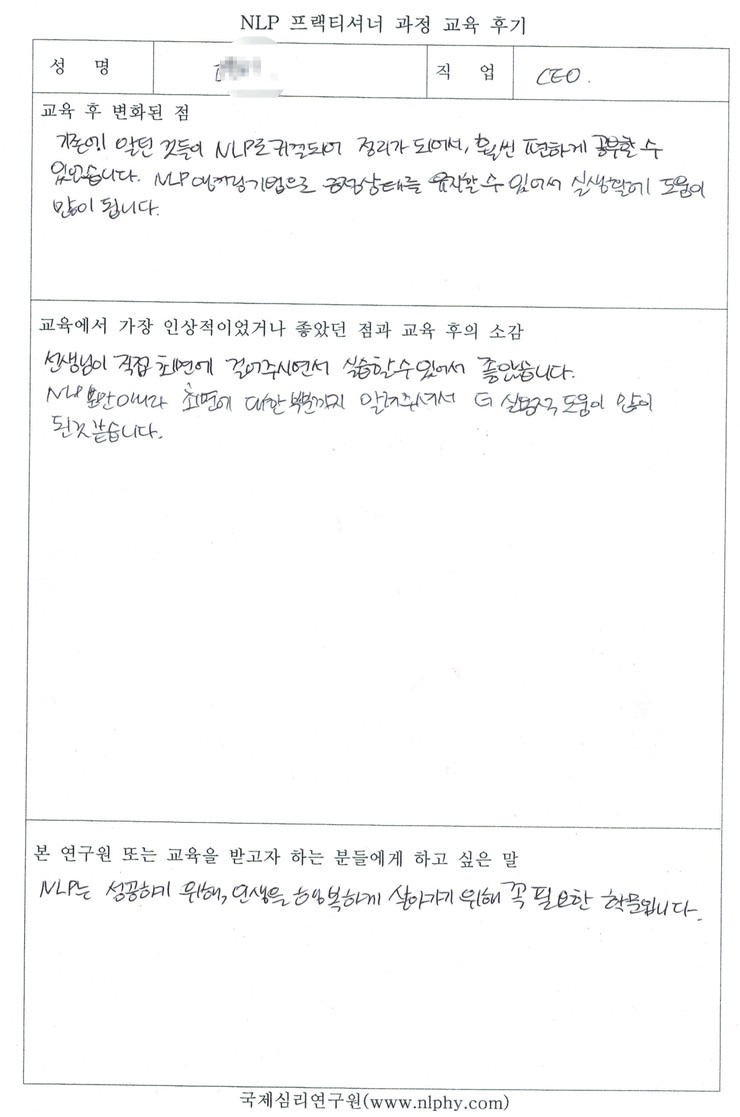 NLP 프랙티셔너 과정 교육 후기
성 명
직 업 CEO.
교육 후 변화된 점
기존에 알던 것들이 NLP로 귀결되어 정리가 되어서, 훨씬 편하게 공부할 수
있었습니다. NLP 앵커링기법으로 긍정상태를 유지할 수 있어서 실생활에 도움이
많이 됩니다.
교육에서 가장 인상적이었거나 좋았던 점과 교육 후의 소감
선생님이 직접 최면에 걸어주시면서 실습할 수 있어서 좋았습니다.
NLP 뿐만 아니라 최면에 대한 부분까지 알려주셔서 더 실질적 도움이 많이
된것 같습니다.
본 연구원 또는 교육을 받고자 하는 분들에게 하고 싶은 말
NLP는 성공하기 위해, 인생을 행복하게 살아가기 위해 꼭 필요한 학문입니다.
국제심리연구원(www.nlphy.com)